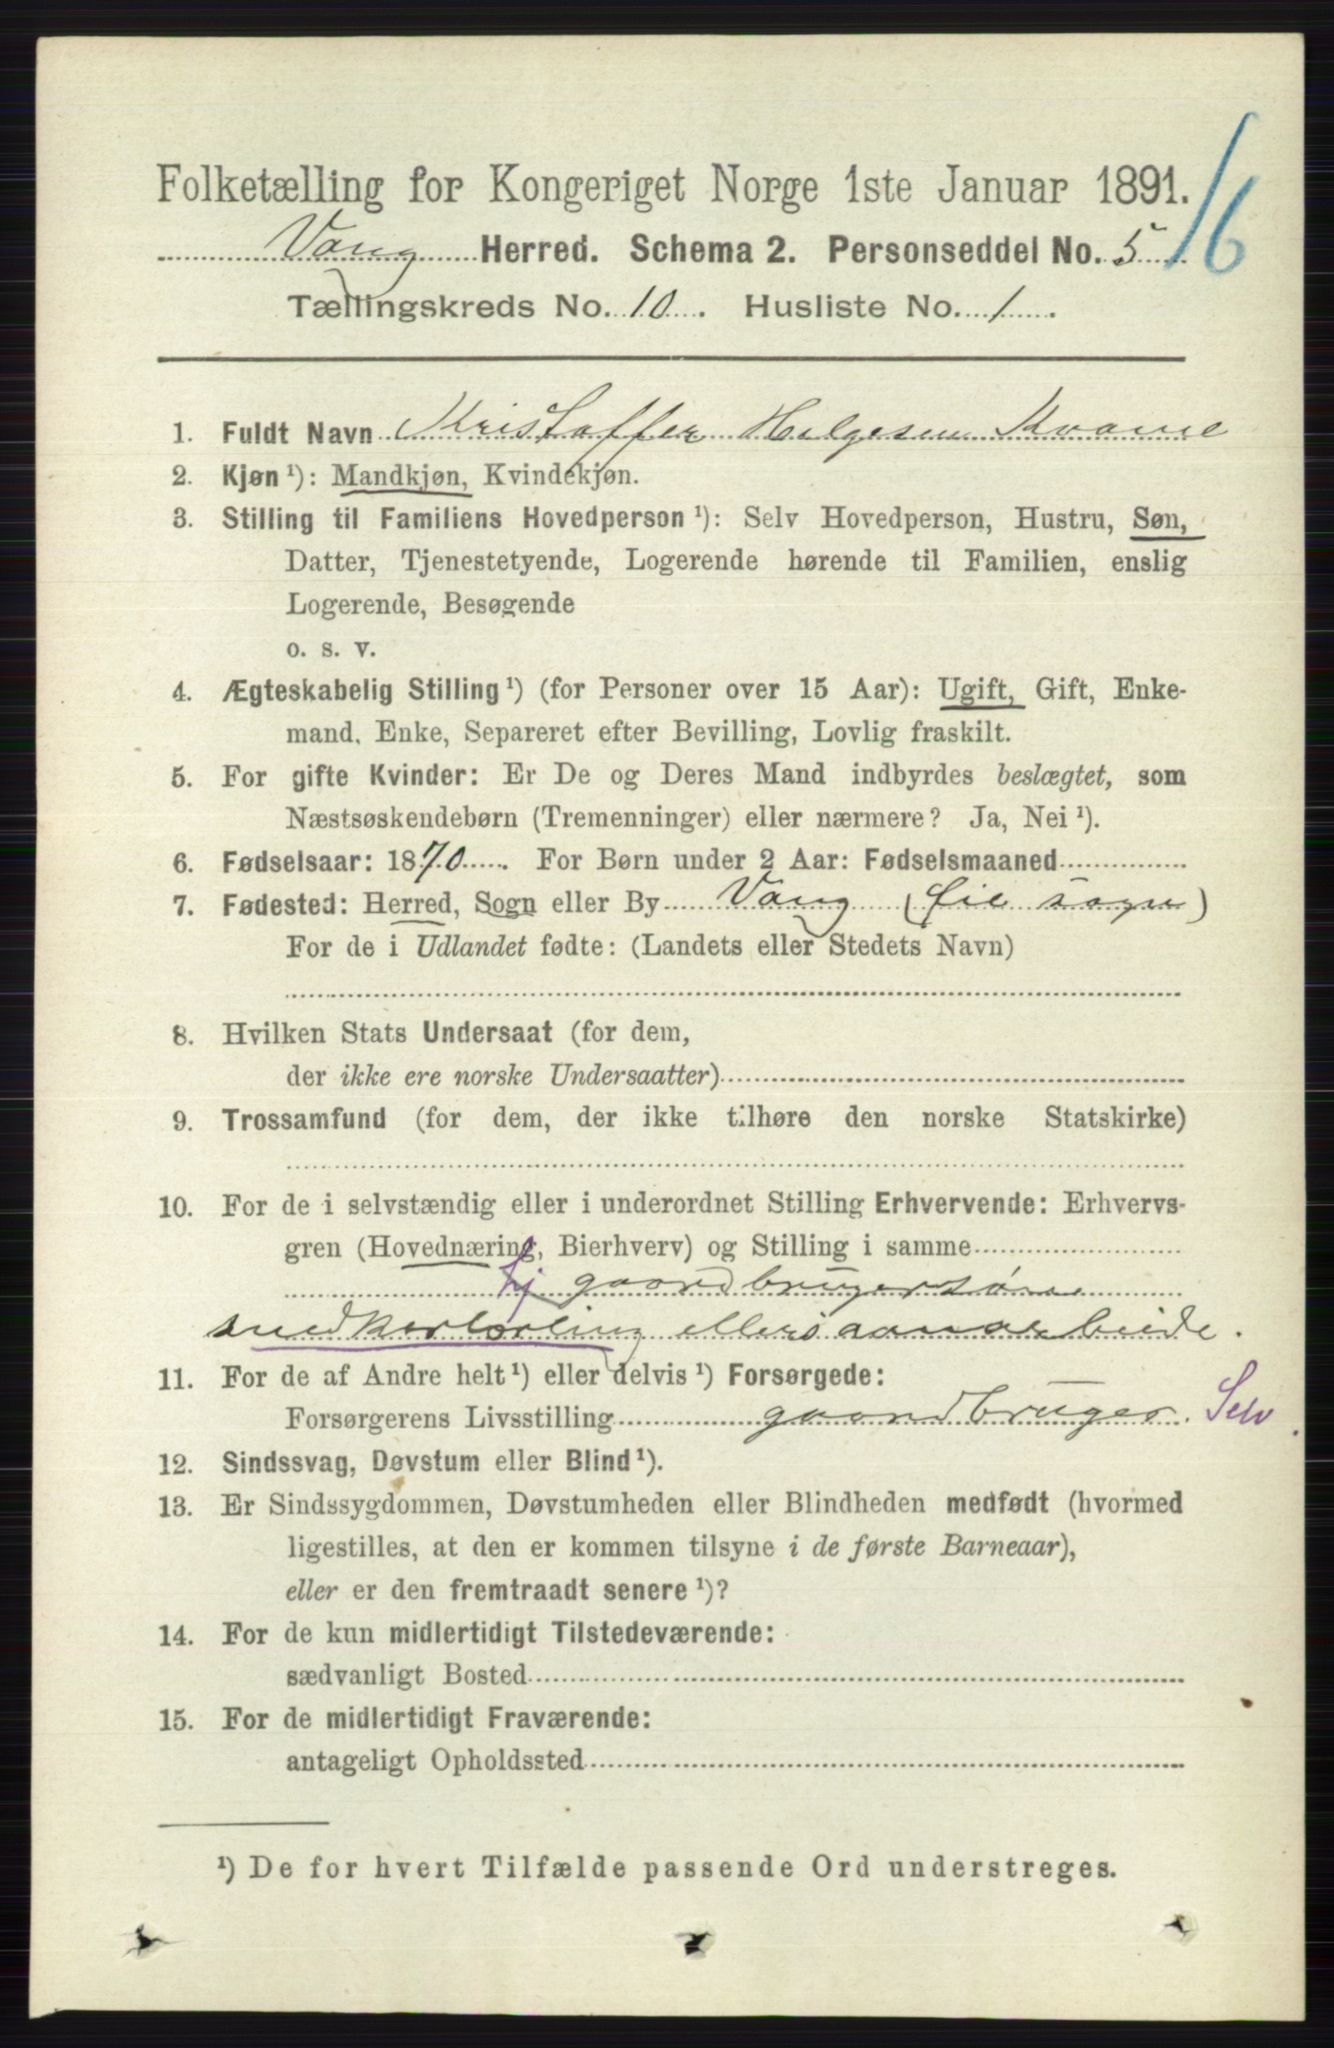 Folketælling for Kongeriget Norge 1ste Januar 1891.
16
Vang Herred. Schema 2. Personseddel No. 5
Tællingskreds No. 10. Husliste No. 1.
1. Fuldt Navn Kristoffer Helgesen Kvame
2. Kjøn ¹): Mandkjøn, Kvindekjøn.
3. Stilling til Familiens Hovedperson ¹): Selv Hovedperson, Hustru, Søn,
Datter, Tjenestetyende, Logerende hørende til Familien, enslig
Logerende, Besøgende
o. s. v.
4. Ægteskabelig Stilling ¹) (for Personer over 15 Aar): Ugift, Gift, Enke-
mand, Enke, Separeret efter Bevilling, Lovlig fraskilt.
5. For gifte Kvinder: Er De og Deres Mand indbyrdes beslægtet, som
Næstsøskendebørn (Tremenninger) eller nærmere? Ja, Nei ¹).
6. Fødselsaar: 1870. For Børn under 2 Aar: Fødselsmaaned
7. Fødested: Herred, Sogn eller By Vang ( sogn)
For de i Udlandet fødte: (Landets eller Stedets Navn)
8. Hvilken Stats Undersaat (for dem,
der ikke ere norske Undersaatter)
9. Trossamfund (for dem, der ikke tilhøre den norske Statskirke)
10. For de i selvstændig eller i underordnet Stilling Erhvervende: Erhvervs-
gren (Hovednæring, Bierhverv) og Stilling i samme
gaardbrugersøn
snedkerlærling ellers
11. For de af Andre helt ¹) eller delvis ¹) Forsørgede:
Forsørgerens Livsstilling gaardbruger. Selv
12. Sindssvag, Døvstum eller Blind ¹).
13. Er Sindssygdommen, Døvstumheden eller Blindheden medfødt (hvormed
ligestilles, at den er kommen tilsyne i de første Barneaar),
eller er den fremtraadt senere ¹)?
14. For de kun midlertidigt Tilstedeværende:
sædvanligt Bosted
15. For de midlertidigt Fraværende:
antageligt Opholdssted
¹) De for hvert Tilfælde passende Ord understreges.